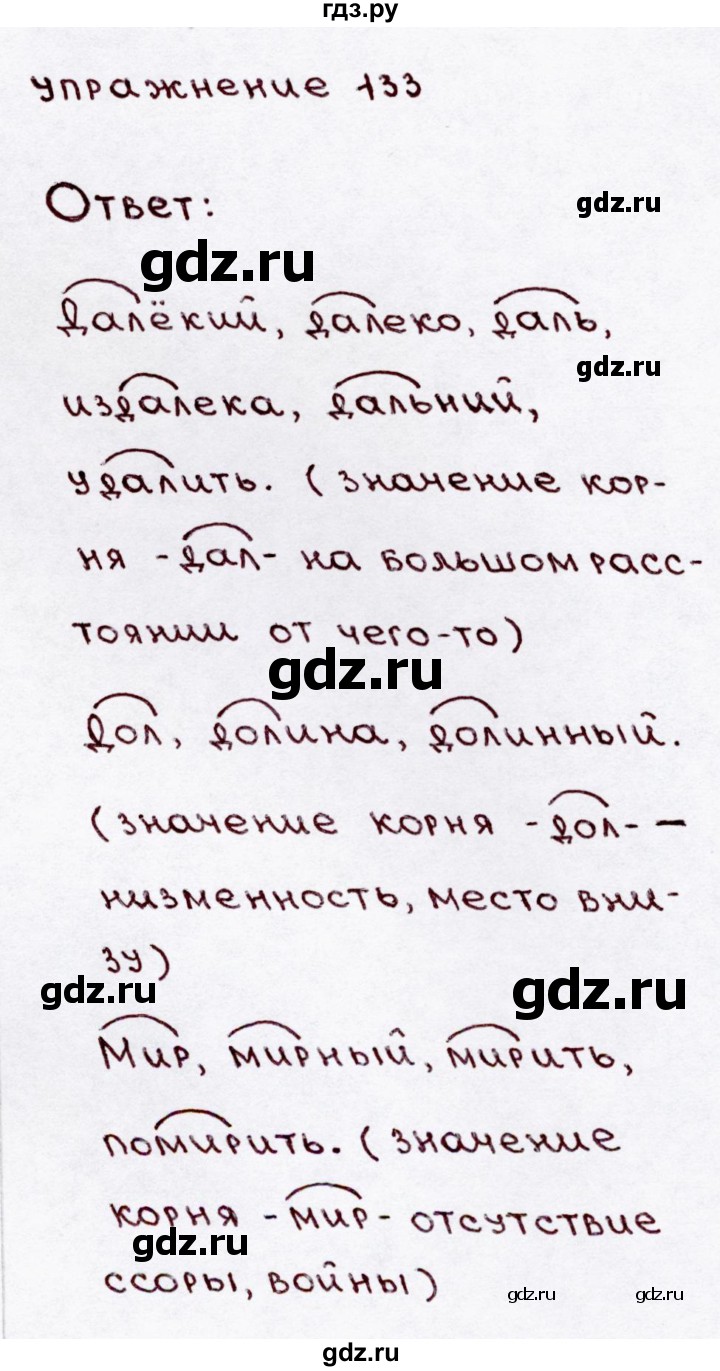 гдз.ру
упражнение 133
Ответ:
gdz.ru
gdz.ru
Далёкий, далеко, даль,
gdz.ru
издалека, дальний,
удалить. (значение кор-
ня -дал- на большом расс-
тоянии от чего-то)
gdz.ru
Дол, долина, долинный.
(значение корня -дол- —
низменность, место вни-
зу)
gdz.ru
gdz.ru
Мир, мирный, мирить,
помирить. (значение
корня -мир- отсутствие
gdz.ru
ссоры, войны)
gdz.ru
gdz.ru
gdz.ru